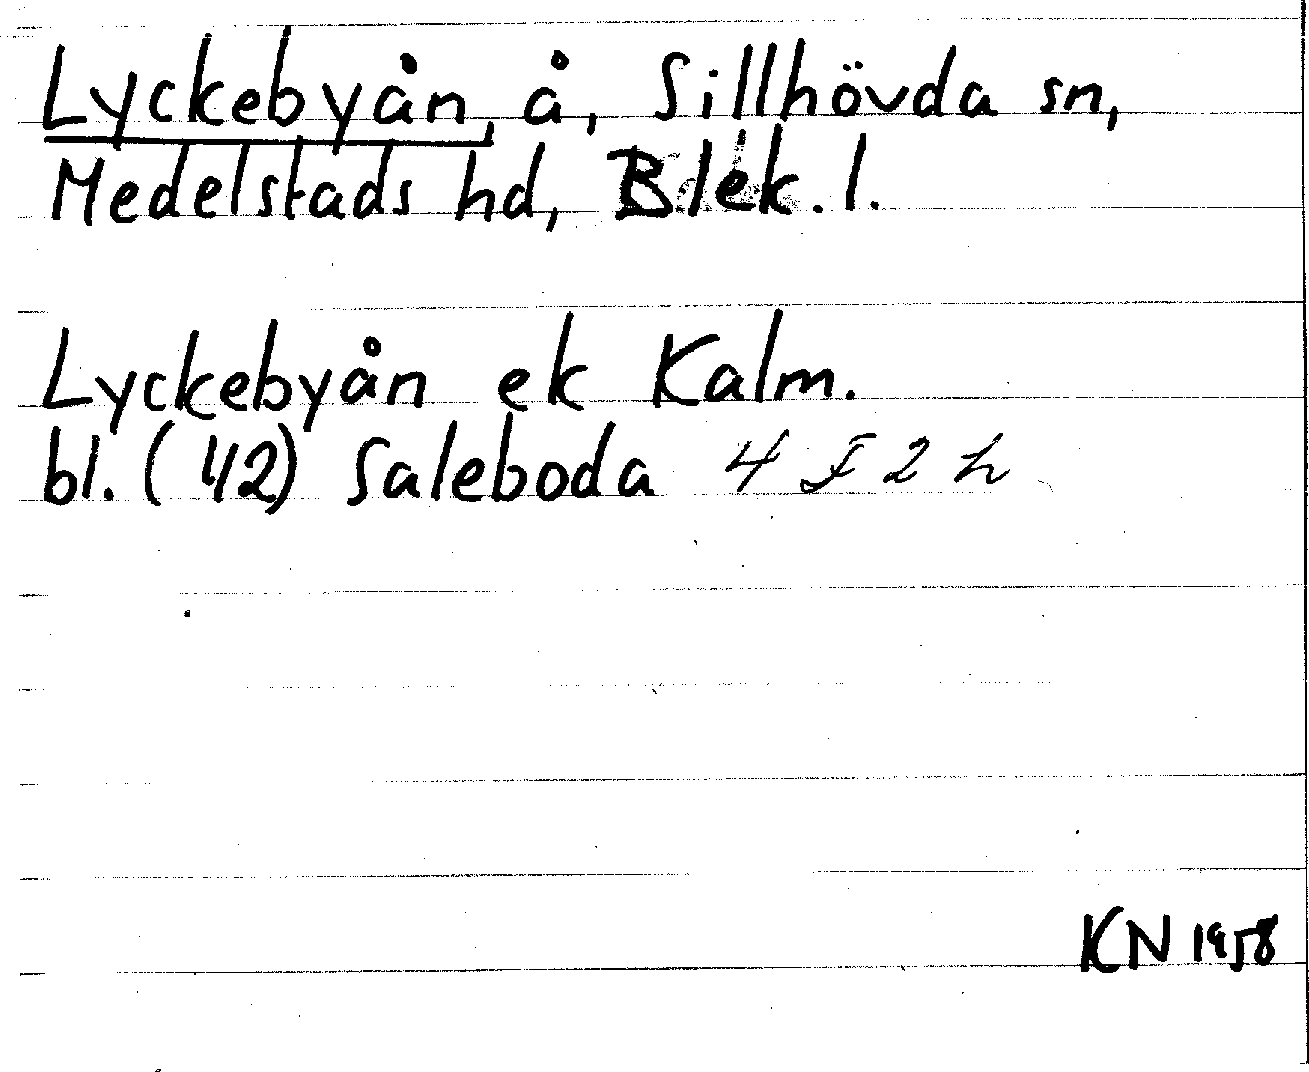 Lyckebyån, å, Sillhövda sn,
Medelstads hd, Blek. l.
Lyckebyån ek Kalm.
bl. (42) Saleboda 4 F 2 h
KN 1958